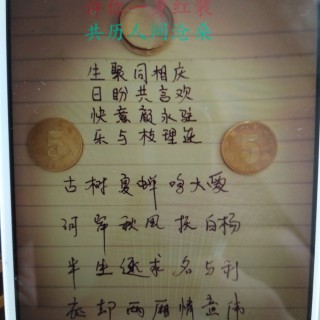 一身红装
共历人间沧桑
生聚同相庆
日盼共言欢
快意颜永驻
乐与枝理连
5
5
古树夏蝉鸣大爱
河岸秋风抚白杨
半生逐求名与利
却两厢情意